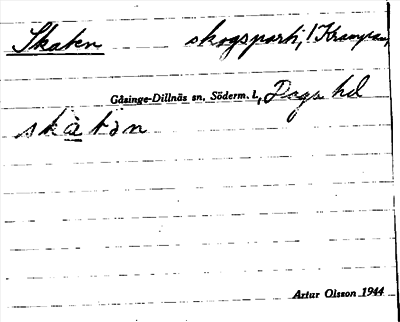 Skaten skogsparti, i Krampan,
Gåsinge-Dillnäs sn, Söderm. l., Daga hd
skàtən
Artur Olsson 1944